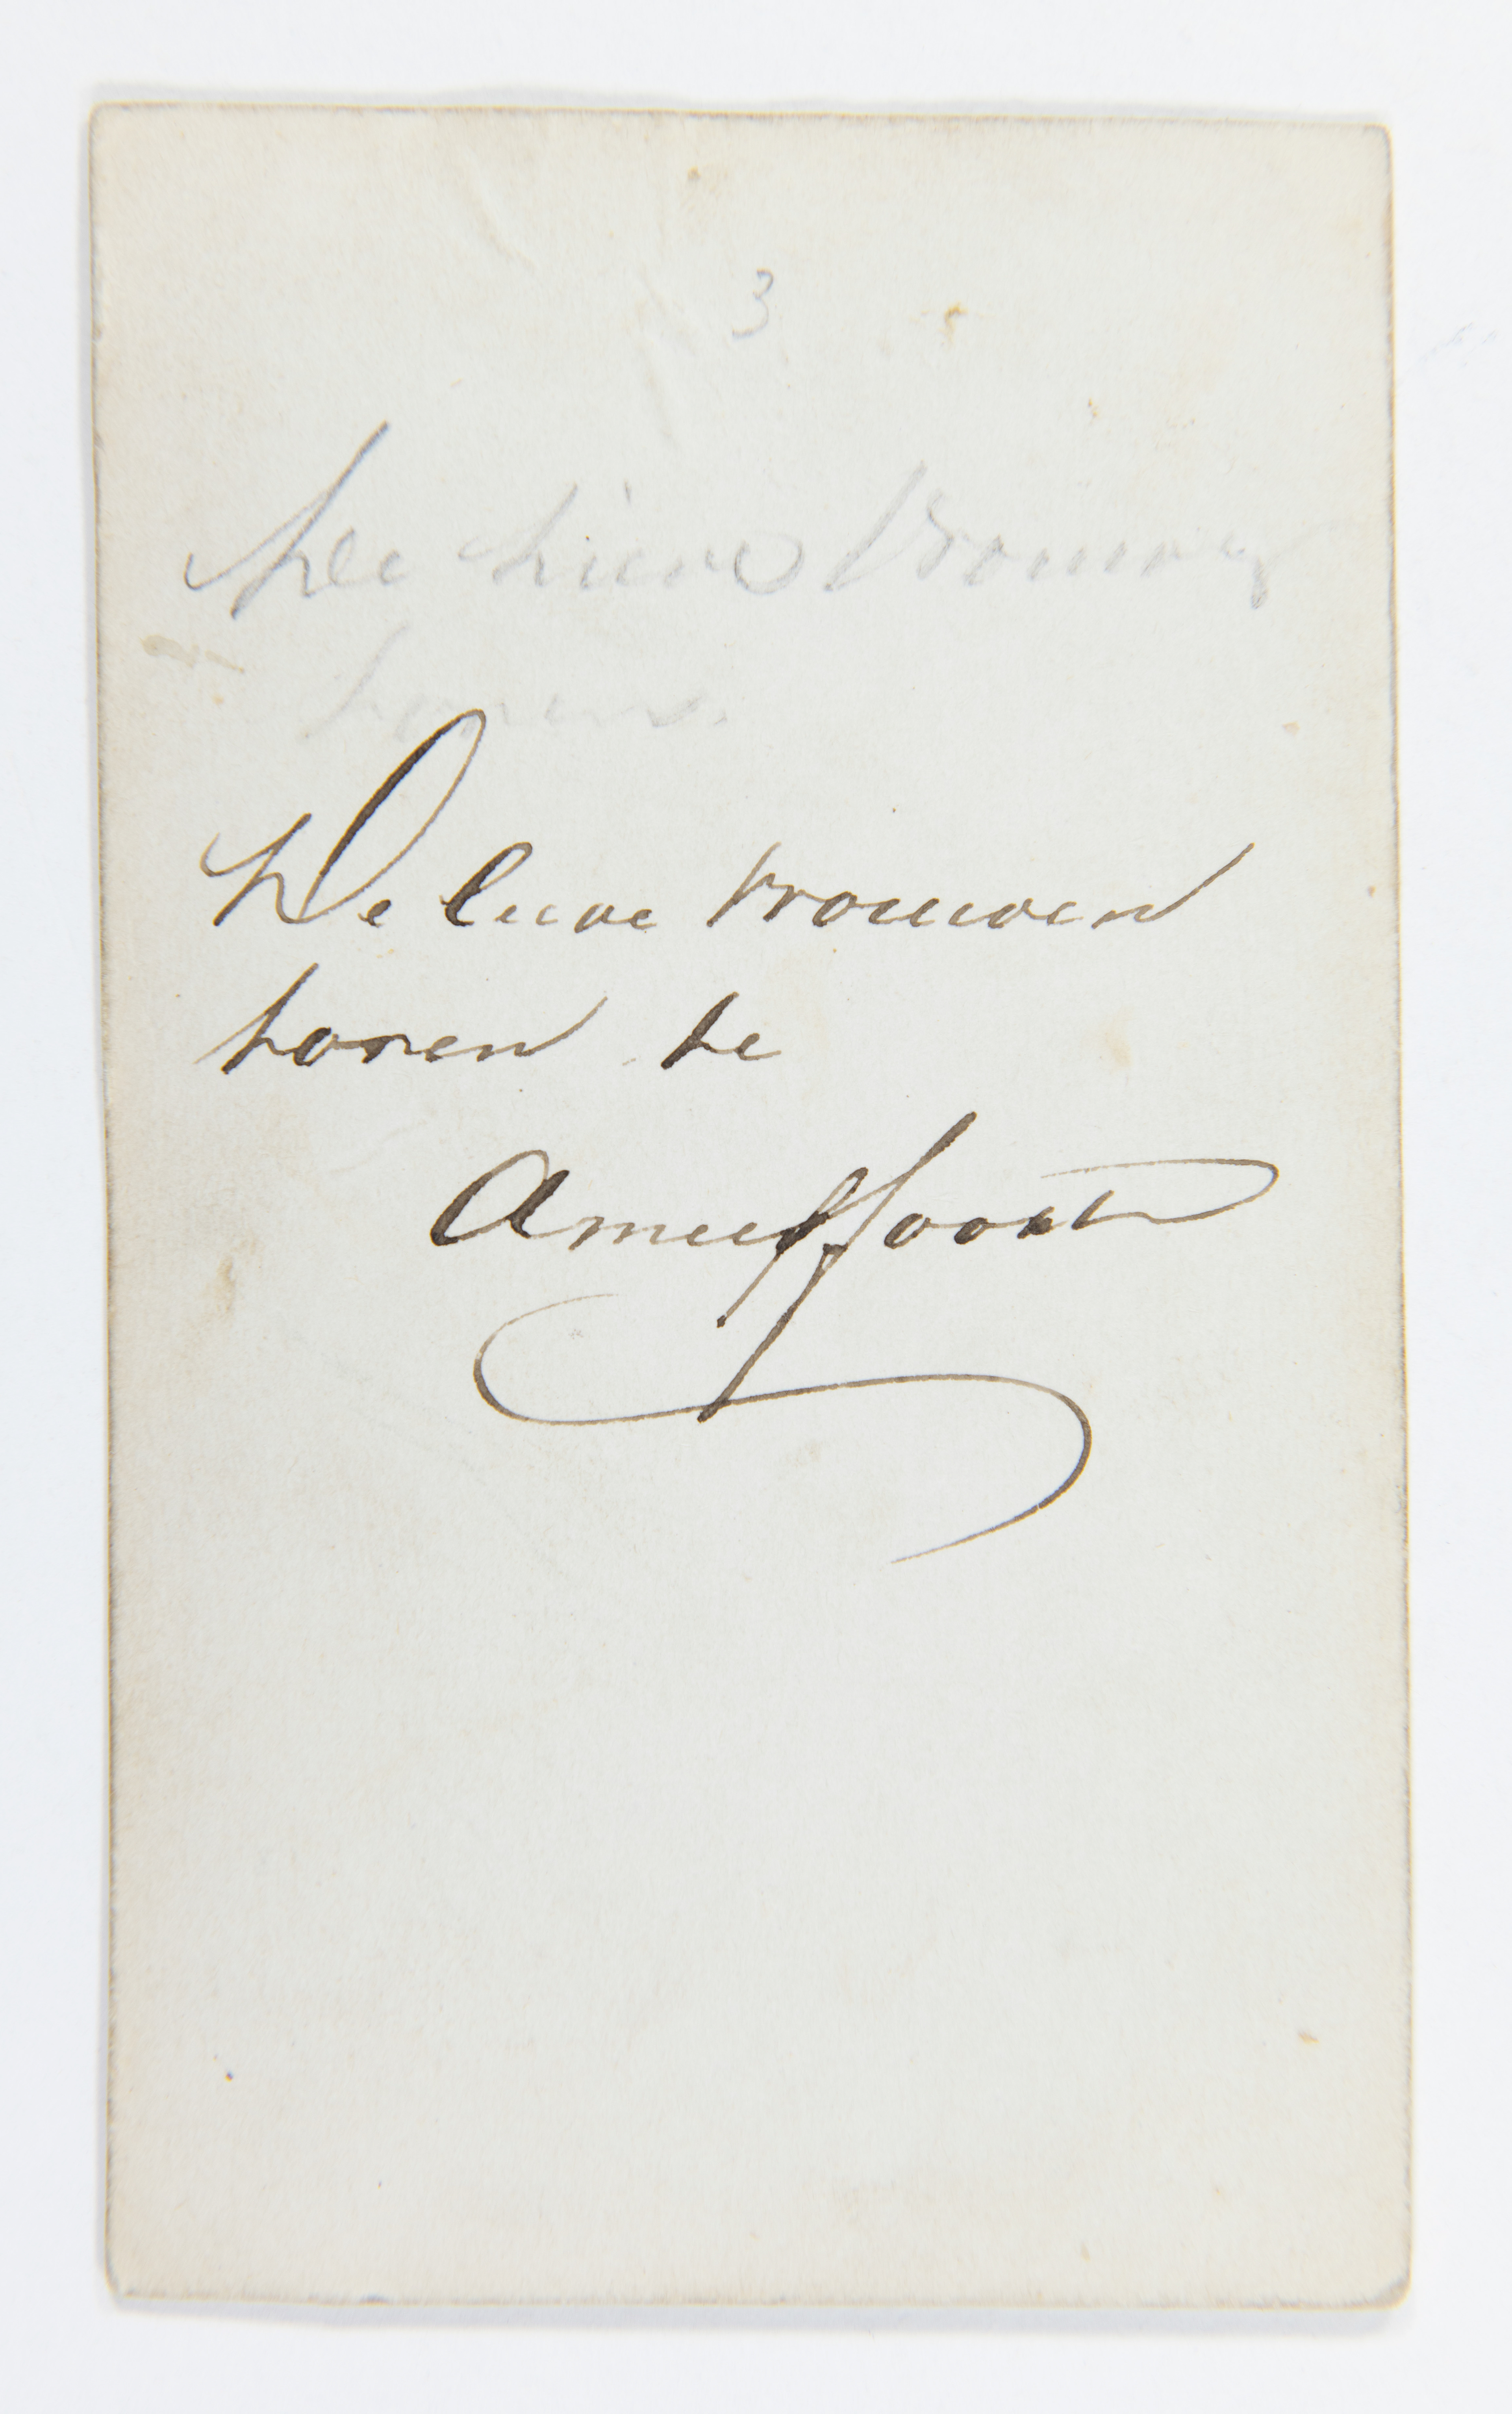 3
De Lieve Vrouwe
toren.
De lieve Vrouwen
toren te
Amersfoort